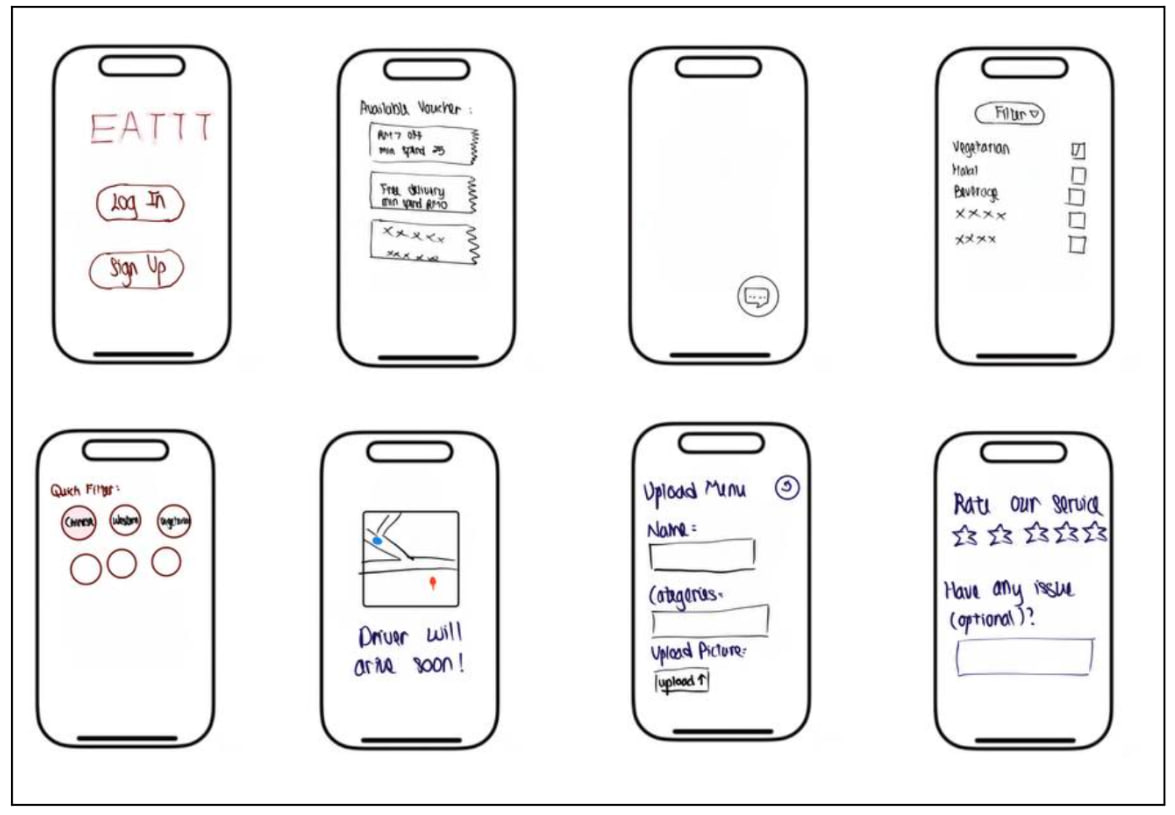 EATTT
Log In
Sign Up
Available Voucher :
RM7 off
min spend 25
Free delivery
min spend RM0
xxxxx
xxxxx
Filter
Vegetarian
Halal
Beverage
xxxx
xxxx
Quick Filter:
Chinese Western Vegetarian
Driver will
arive soon!
Upload Menu
Name:
Categories:
Upload Picture:
upload ↑
Rate our service
Have any issue
(optional)?